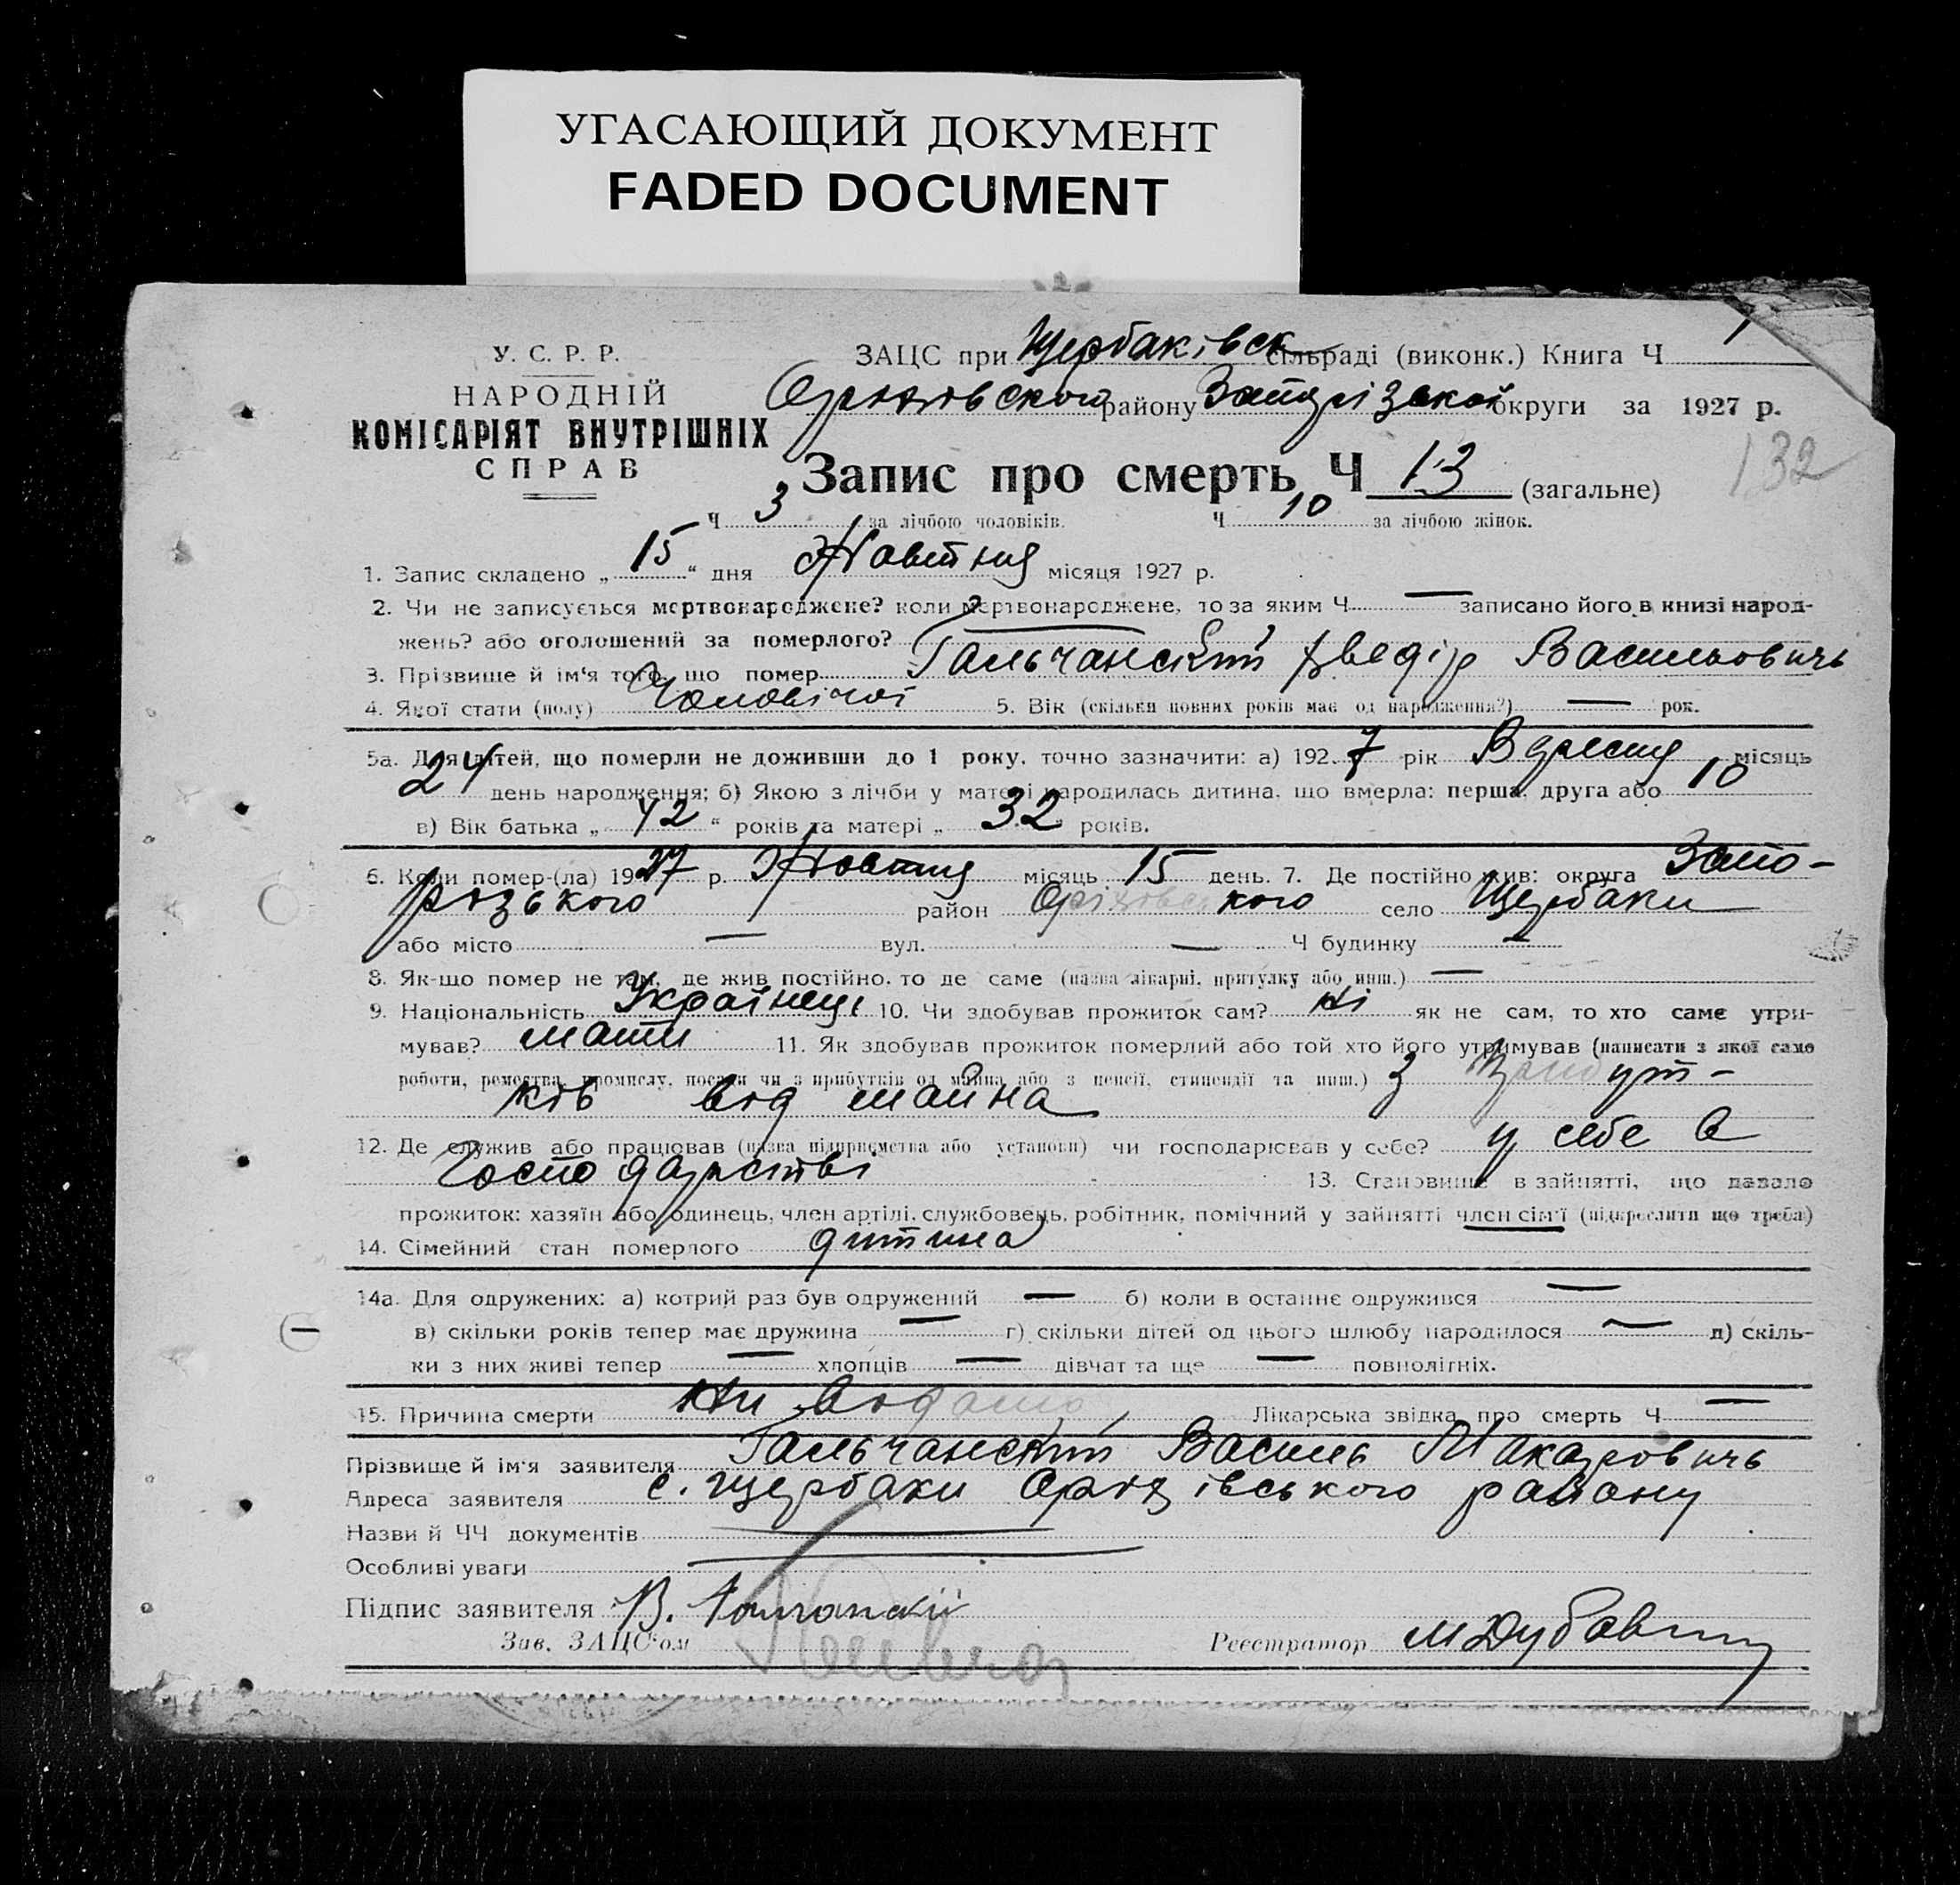 УГАСАЮЩИЙ ДОКУМЕНТ
FADED DOCUMENT
У. С. Р. Р.
НАРОДНІЙ
КОМІСАРІЯТ ВНУТРІШНІХ
СПРАВ
ЗАЦС при Щербаківск сільраді (виконк.) Книга Ч 1
району Запорізской округи за 1927 р.
132
Запис про смерть Ч 13 (загальне)
Ч 3 за лічбою чоловіків. Ч 10 за лічбою жінок.
1. Запис складено „ 15 “ дня Жовтня місяця 1927 р.
2. Чи не записується мертвонароджене? коли мертвонароджене, то за яким Ч — записано його в книзі народ-
жень? або оголошений за померлого? —
3. Прізвище й ім'я того, що помер Гальчанский Хведір Васильовичь
4. Якої стати (полу) Чоловічої 5. Вік (скільки повних років має од народження?) — рок.
5а. Для дітей, що померли не доживши до 1 року, точно зазначити: а) 192 7 рік Вересня місяць
24 день народження; б) Якою з лічби у матері народилась дитина, що вмерла: перша, друга або 10
в) Вік батька „ 42 “ років та матері „ 32 “ років.
6. Коли помер-(ла) 1927 р. Жовтня місяць 15 день. 7. Де постійно жив: округа Запо-
різького район Оріхівського село Щербаки
або місто — вул. — Ч будинку —
8. Як-що помер не там, де жив постійно, то де саме (назва лікарні, притулку або инш.) —
9. Національність Українець 10. Чи здобував прожиток сам? Ні як не сам, то хто саме утри-
мував? мати 11. Як здобував прожиток померлий або той хто його утримував (написати з якої само
роботи, ремества, промислу, посади чи з прибутків од майна або з пенсії, стипендії та инш.) З
ків від майна
12. Де служив або працював (назва підприємства або установи) чи господарював у себе? у себе в
господарстві 13. Становище в зайнятті, що давало
прожиток: хазяїн або одинець, член артілі, службовець, робітник, помічний у зайнятті член сім'ї (підкреслити що треба)
14. Сімейний стан померлого дитина
14а. Для одружених: а) котрий раз був одружений — б) коли в останнє одружився —
в) скільки років тепер має дружина — г) скільки дітей од цього шлюбу народилося — д) скіль-
ки з них живі тепер — хлопців — дівчат та ще — повнолітніх.
15. Причина смерти Ни відомо Лікарська звідка про смерть Ч —
Прізвище й ім'я заявителя Гальчанский Василь Макаровичь
Адреса заявителя с. Щербаки Оріхівського району
Назви й ЧЧ документів —
Особливі уваги —
Підпис заявителя В.
Зав. ЗАЦС'ом
Реєстратор